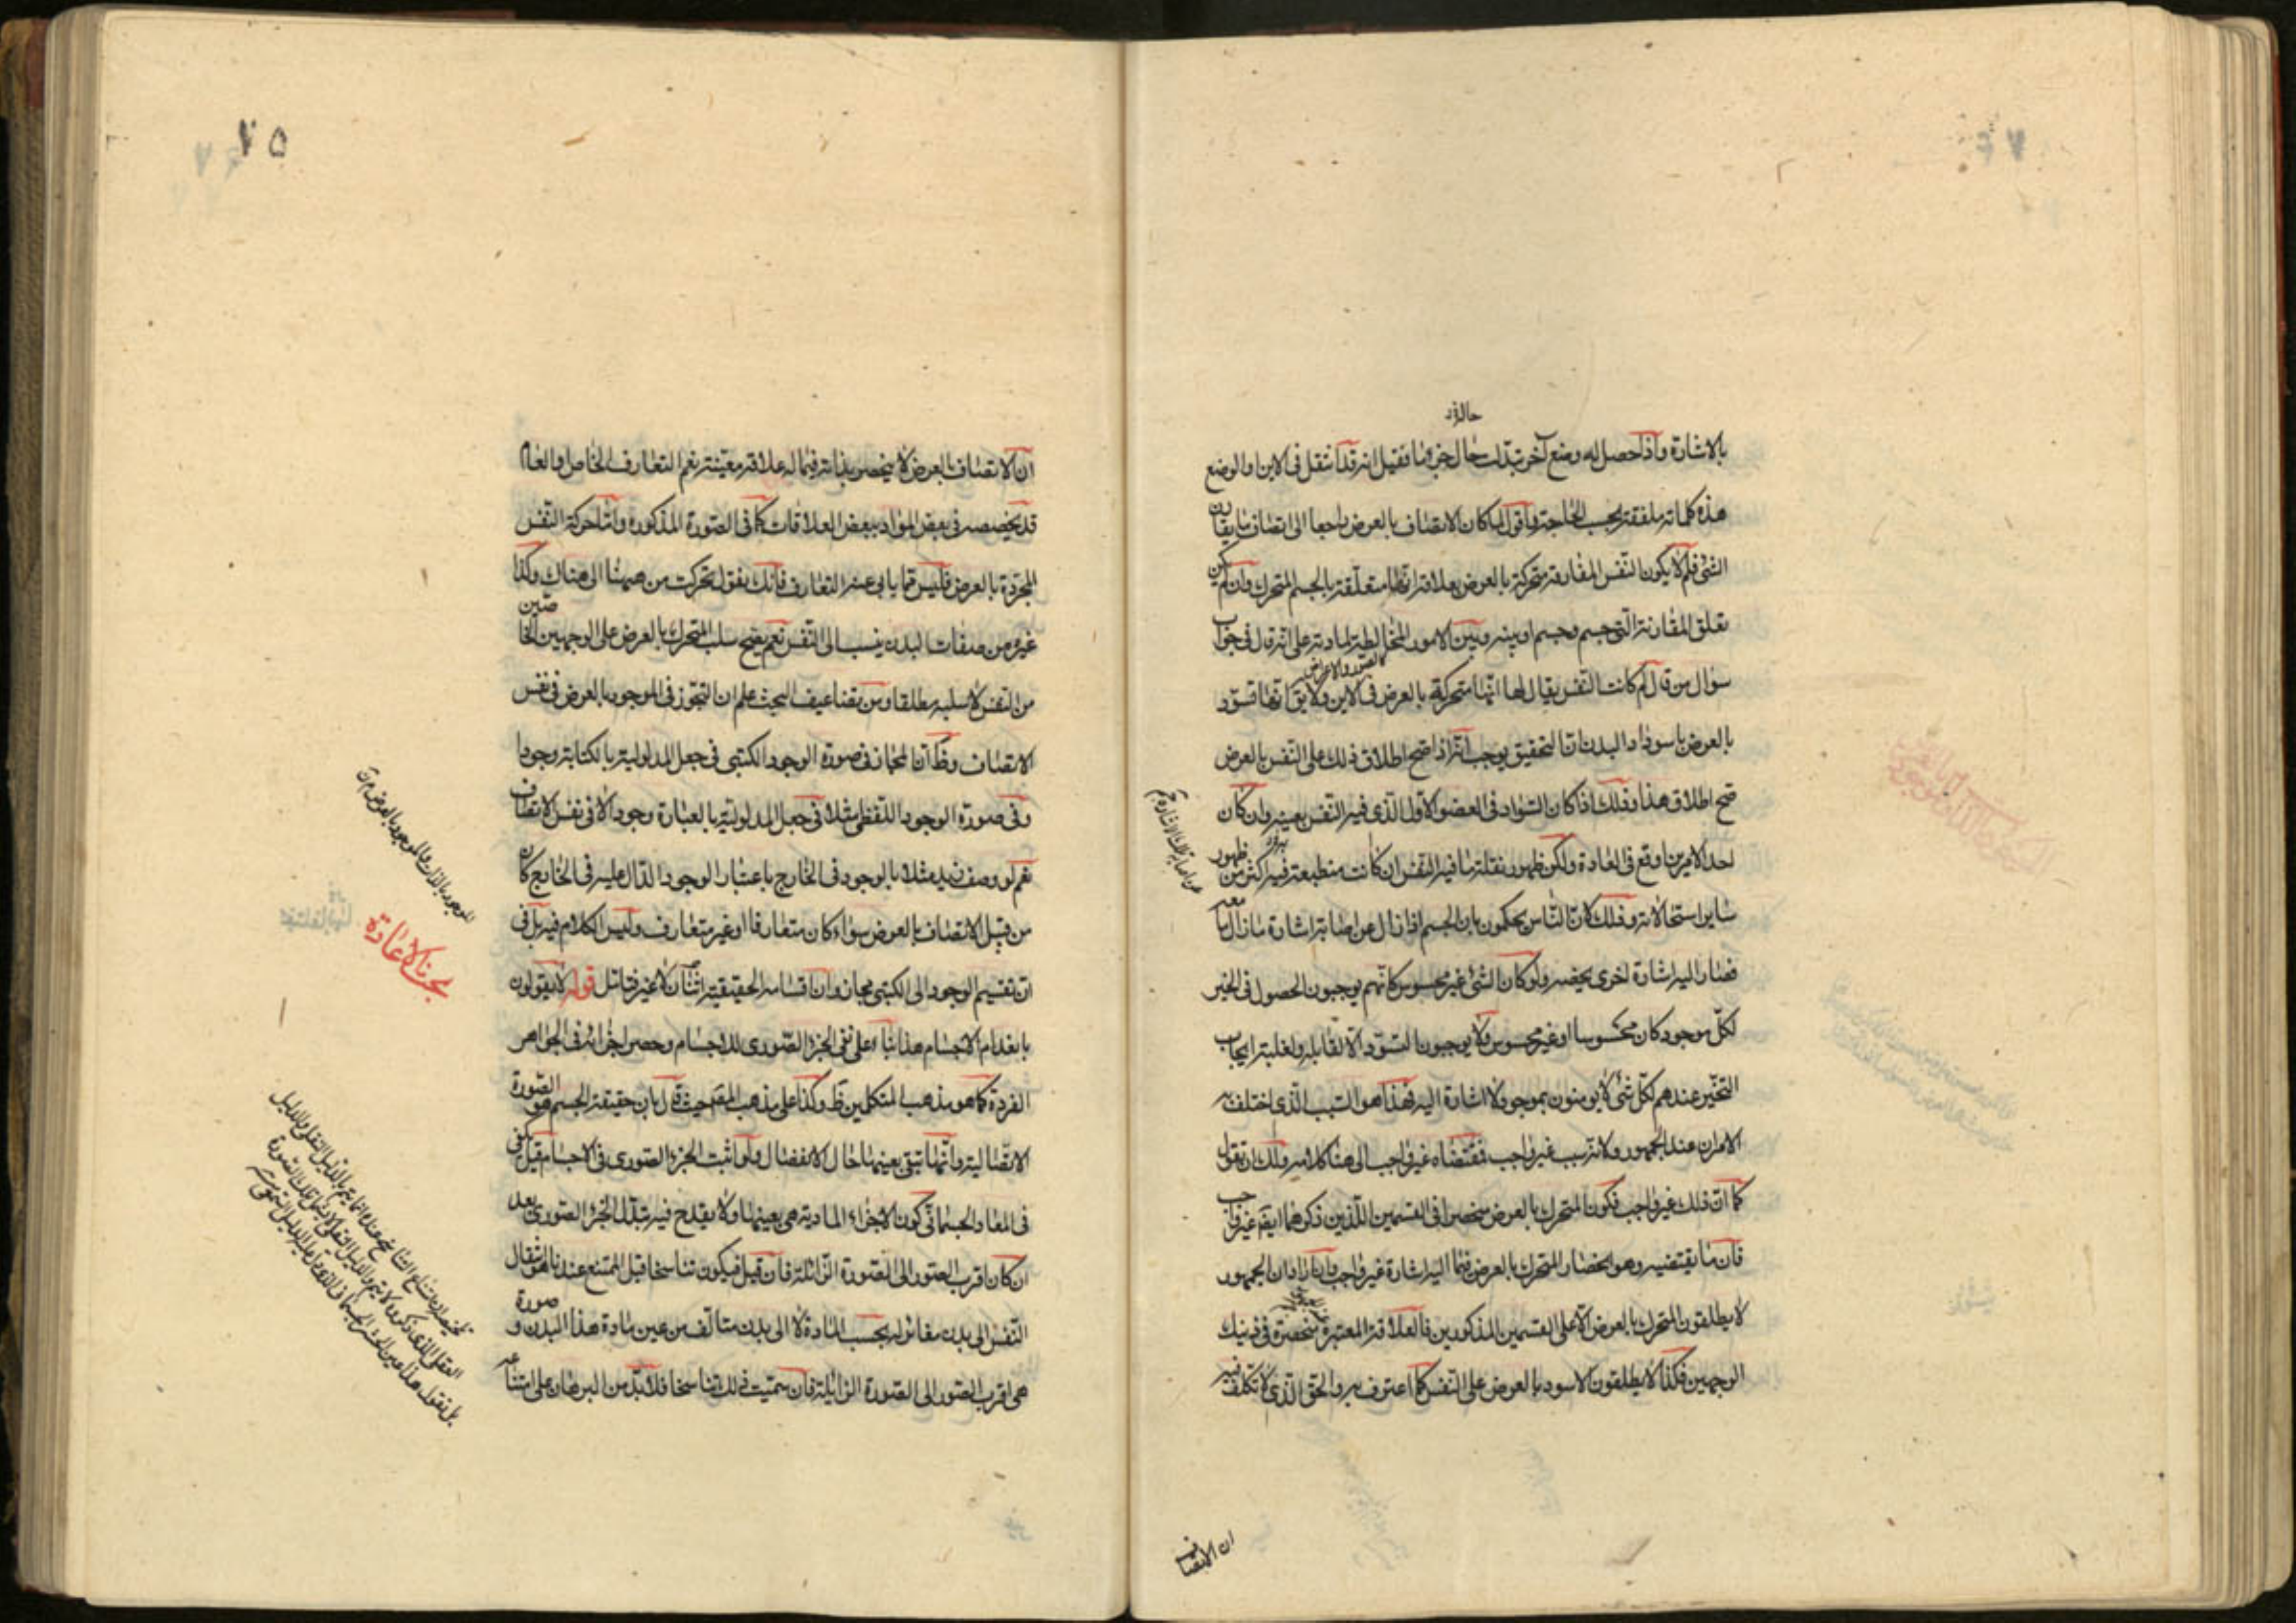 حاله فى
بالاشارة واذا حصل له وضع آخر تبدلت حال جزء ما فقيل انه قد انتقل فى الاين والوضع
هذه كلماته ملفقة بحسب الحاجة واقول لما كان الاتصاف بالعرض راجعا الى اتصاف ما يقارن
الشئ فلم لا يكون النفس المفارقة متحركة بالعرض بعلاقة انها متعلقة بالجسم المتحرك وان لم يكن
تعلق المقارنة التى جسم وجسم او بينه وبين الامور المخالطة لمادته على انه قال فى جواب
كالصور والاعراض
سؤال من قال لم كانت النفس يقال لها انها متحركة بالعرض فى الاين ولا يق انها تسود
بالعرض باسوداد البدن ان التحقيق يوجب انه اذا صح اطلاق ذلك على النفس بالعرض
صح اطلاق هذا وذلك اذا كان السواد فى العضو الاول الذى فيه النفس بعينه وان كان
احد الامرين اوقع فى العادة ولكن ظهور نقلة ما فيه النفس ان كانت منطبعة فيه اكثر من ظهور
ساير استحالاته وذلك لان الناس يحكمون بان الجسم اذا زال عن اصابته اشارة ما زال ما معه
فصار اليه اشارة اخرى يخصه ولو كان الشئ غير محسوس كانهم يوجبون الحصول فى الحيز
لكل موجود كان محسوسا او غير محسوس ولا يوجبون التسود الا لقابله ولغلبة ايجاب
التحيز عندهم لكل شئ لا يومنون بموجود لا اشارة اليه فهذا هو السبب الذى اختلف به
الامران عند الجمهور ولانه سبب غير واجب فمقتضاه غير واجب الى هنا كلامه ولك ان تقول
كما ان ذلك غير واجب فكون المتحرك بالعرض منحصرا فى القسمين اللذين ذكرهما ايض غير واجب
فان ما يقتضيه وهو انحصار المتحرك بالعرض فيما اليه اشارة غير واجب وان اراد ان الجمهور
لا يطلقون المتحرك بالعرض الا على القسمين المذكورين فالعلاقة المعتبرة منحصرة فى ذينك
الوجهين فكذا لا يطلقون الاسود بالعرض على النفس كما اعترف به والحق الذى لا تكلف فيه
ان الاتصاف
٧٥
ان الاتصاف بالعرض لا ينحصر بذاته فيما له علاقة معينة نعم التعارف الخاص والعام
قد يخصصه فى بعض المواد ببعض العلاقات كما فى الصورة المذكورة وامّا حركة النفس
المجردة بالعرض فليس مما يابى عنه التعارف فانك تقول تحركت من هيهنا الى هناك وكذا
غيره من صفات البدن ينسب الى النفس نعم يصح سلب المتحرك بالعرض على الوجهين الخاصين
من النفس لا سلبه مطلقا ومن تضاعيف البحث علم ان التجوز فى الموجود بالعرض فى نفس
الاتصاف وظ ان المجاز فى صورة الوجود الكتبى فى جعل المدلولية بالكتابة وجودا
وفى صورة الوجود اللفظى مثلا فى جعل المدلولية بالعبارة وجودا لا فى نفس الاتصاف
نعم لو وصف زيد مثلا بالوجود فى الخارج باعتبار الوجود الدال عليه فى الخارج كان
من قبيل الاتصاف بالعرض سواء كان متعارفا او غير متعارف وليس الكلام فيه بل فى
ان تقسيم الوجود الى الكتبى مجاز وان اقسامه الحقيقية اثنان لا غير فتامل قوله لا يقولون
بانعدام الاجسام هذا بناء على نفى الجزء الصورى للاجسام وحصر اجزائه فى الجواهر
الفردة كما هو مذهب المتكلمين ظ وكذا على مذهب المص حيث قال بان حقيقة الجسم هو الصورة
الاتصالية وانها تبقى بعينها حال الانفصال ولو اثبت الجزء الصورى فى الاجسام قيل يكفى
فى المعاد الجسمانى كون الاجزاء المادية هى بعينها ولا يقدح فيه تبدل الجزء الصورى بعد
ان كان اقرب الصور الى الصورة الزائلة فان قيل فيكون تناسخا قيل الممتنع عندنا هو انتقال
النفس الى بدن مغاير له بحسب المادة لا الى بدن متالف من عين مادة هذا البدن وصورة
هى اقرب الصور الى الصورة الزائلة فان سميت ذلك تناسخا فلا بد من البرهان على امتناعه
بحث الاعادة